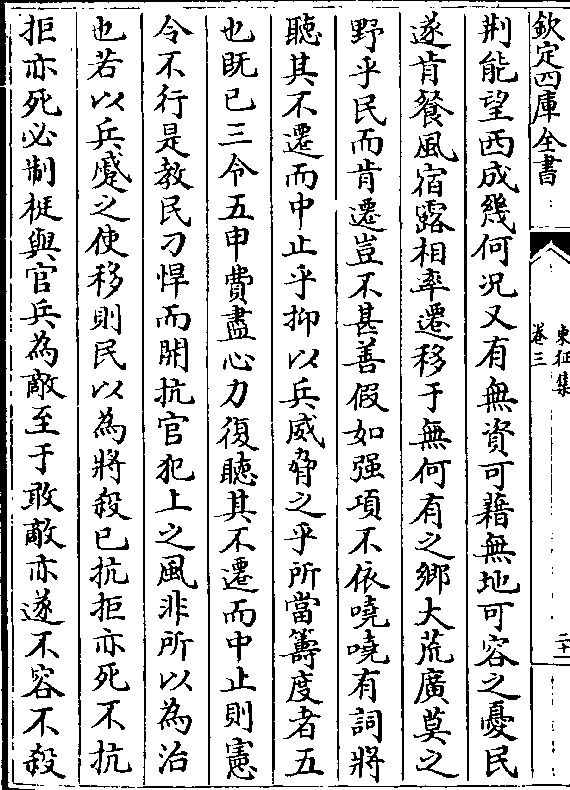 欽定四庫全書
東征集
卷三
二十
荆能望西成幾何况又有無資可藉無地可容之憂民
遂肯餐風宿露相率遷移于無何有之鄉大荒廣莫之
野乎民而肯遷豈不甚善假如强項不依嘵嘵有詞將
聽其不遷而中止乎抑以兵威脅之乎所當籌度者五
也既已三令五申費盡心力復聽其不遷而中止則憲
令不行是教民刁悍而開抗官犯上之風非所以為治
也若以兵蹙之使移則民以為將殺已抗拒亦死不抗
拒亦死必制梃與官兵為敵至于敢敵亦遂不容不殺